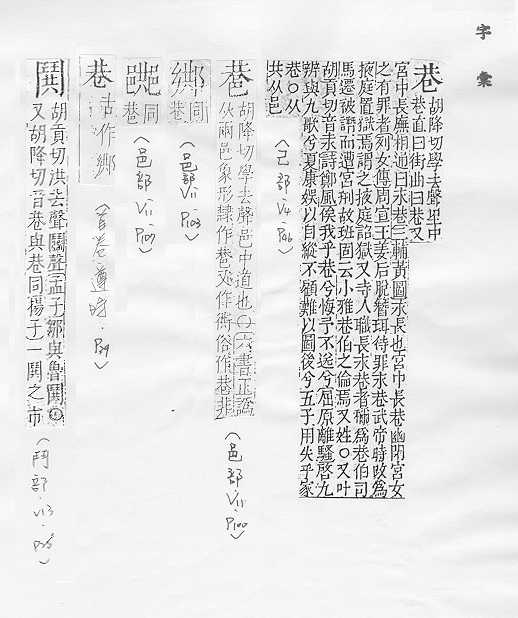 字彙
巷
胡降切學去聲里中
巷直曰街曲曰巷又
宮中長廡相通曰永巷三輔黃圖永長也宮中長巷幽閉宮女
之有罪者列女傳周宣王姜后脫簪珥待罪永巷武帝時改為
掖庭置獄焉謂之掖庭詔獄又寺人職長永巷者稱為巷伯司
馬遷被謗而遭宮刑故班固云小雅巷伯之倫焉又姓○又叶
胡貢切音永詩鄭風俟我乎巷兮悔予不送兮屈原離騷啓九
辨與九歌兮夏康娛以自縱不顧難以圖後兮五子用失乎家
巷○从
共从邑
(己部·V4·P86)
巷
胡降切學去聲邑中道也○六書正譌
从兩邑象形隸作巷又作衖俗作巷非
(邑部V11·P100)
鄉
同巷
(邑部V11·P103)
同巷
(邑部V11·P107)
巷
古作
(首卷遵時·P29)
鬨
胡貢切洪去聲鬭聲孟子鄒與魯鬨○
又胡降切音巷與巷同揚子一鬨之市
(鬥部·V13·P25)